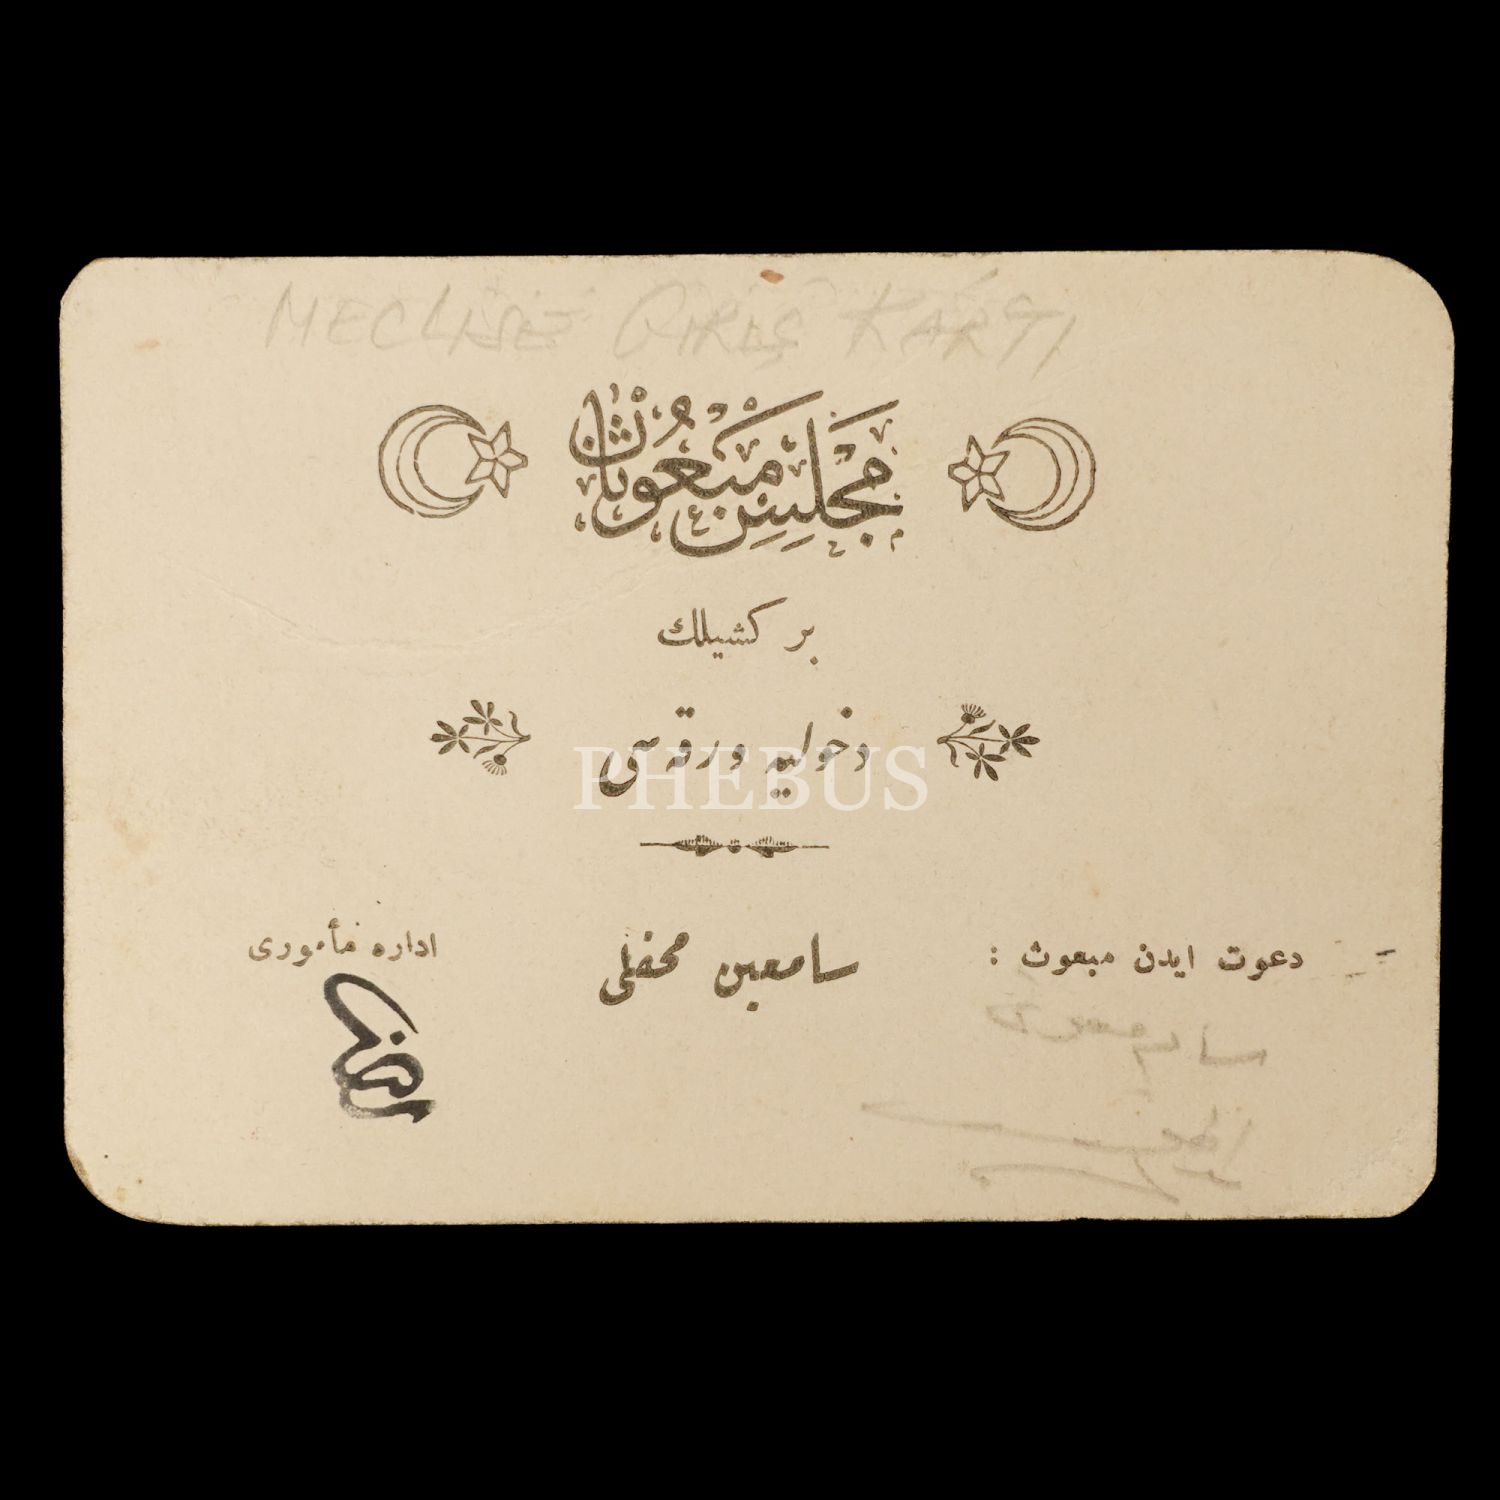 MECLİSE GİRİŞ KARTI
مجلس مبعوثان
بر كشيلك
دخوليه ورقه سی
PHEBUS
دعوت ايدن مبعوث :
سامعين محفلی
اداره مأموری